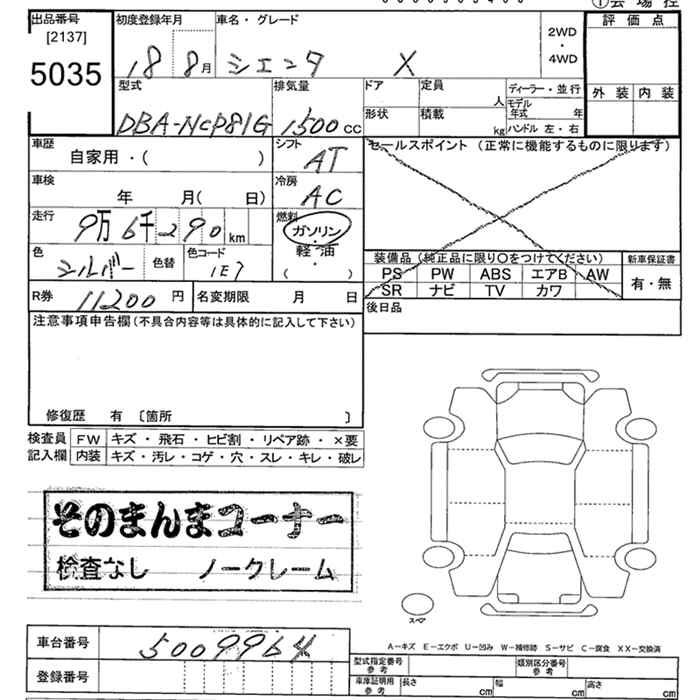 出品番号 初度登録年月 車名・グレード 2WD・4WD 評価点
[2137]
5035 18 8月 シエンタ X
型式 排気量 ドア 定員 人 ディーラー・並行 外装 内装
DBA-NCP81G 1500cc 形状 積載 kg モデル年式 年 ハンドル 左・右
車歴 自家用・( ) シフト AT セールスポイント (正常に機能するものに限ります)
車検 年 月( 日) 冷房 AC
走行 9万6千290km 燃料 ガソリン・軽油・( )
色 シルバー 色替 色コード 1E7 装備品(純正品に限り○をつけてください) 新車保証書
PS PW ABS エアB AW 有・無
SR ナビ TV カワ
R券 11200円 名変期限 月 日 後日品
注意事項申告欄(不具合内容等は具体的に記入して下さい)
修復歴 有 〔箇所 〕
検査員 FW キズ・飛石・ヒビ割・リペア跡・×要
記入欄 内装 キズ・汚レ・コゲ・穴・スレ・キレ・破レ
そのまんまコーナー
検査なし ノークレーム
スペア
A-キズ E-エクボ U-凹み W-補修跡 S-サビ C-腐食 XX-交換済
車台番号 5009964 型式指定番号 参考 類別区分番号 参考
登録番号 車庫証明用 参考 長さ cm 幅 cm 高さ cm